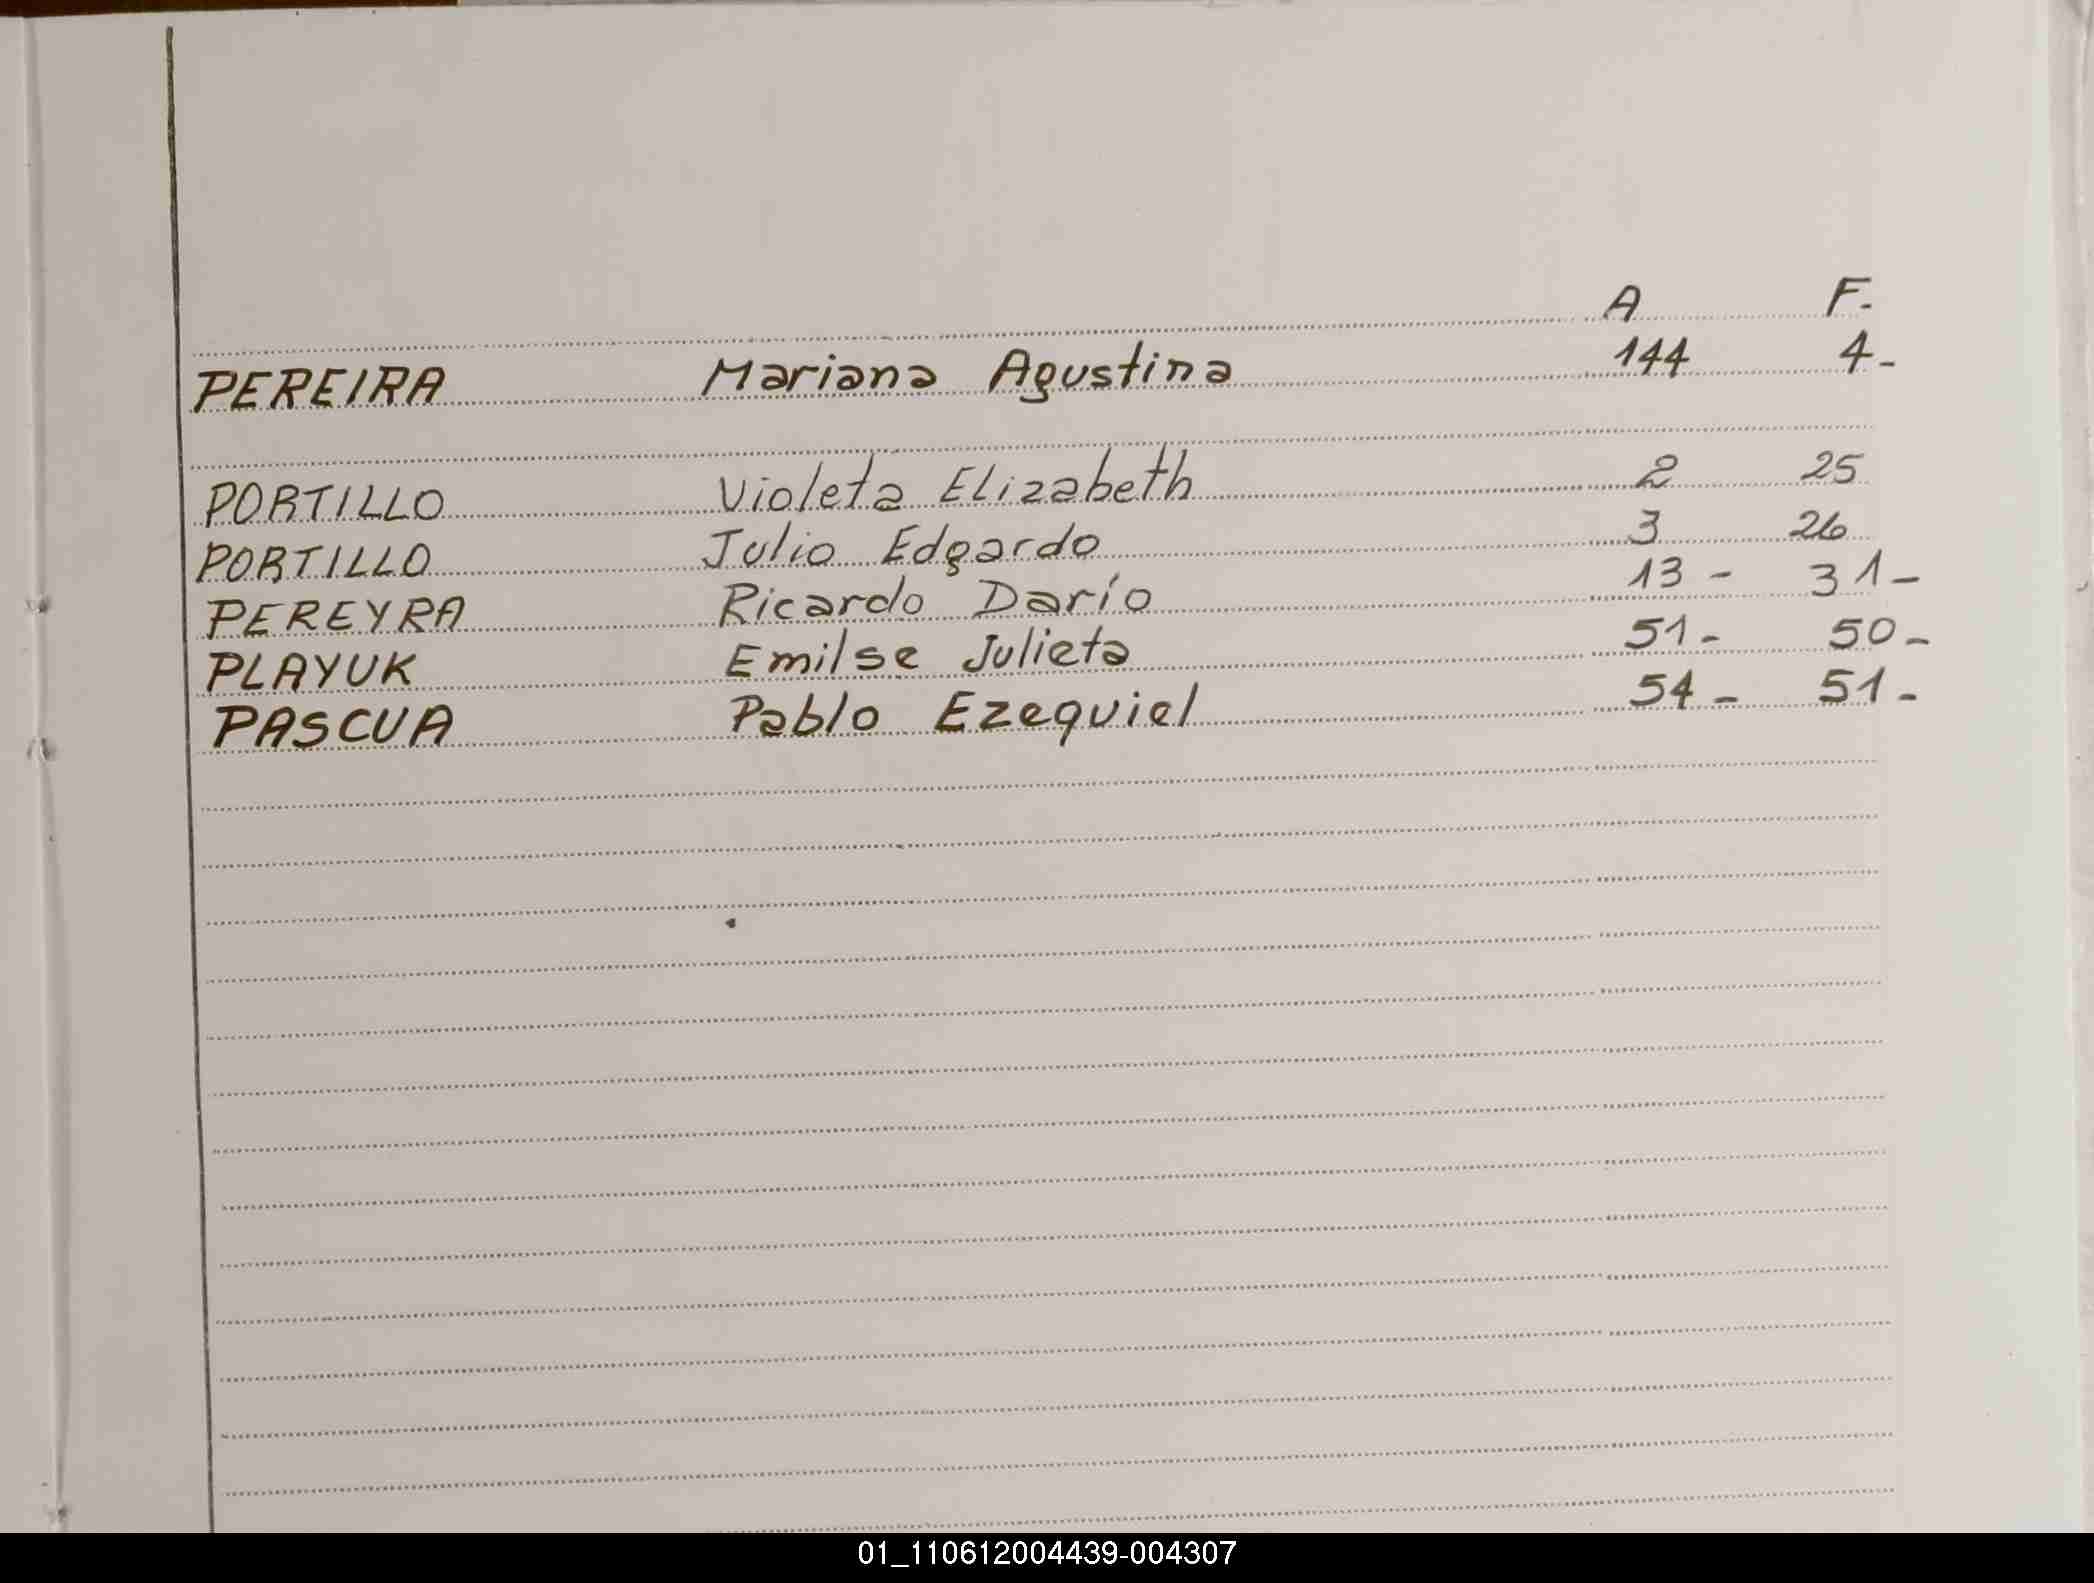 A F.
PEREIRA Mariana Agustina 144 4-
PORTILLO Violeta Elizabeth 2 25
PORTILLO Julio Edgardo 3 26
PEREYRA Ricardo Darío 13 - 31-
PLAYUK Emilse Julieta 51- 50-
PASCUA Pablo Ezequiel 54 - 51-
01_110612004439-004307